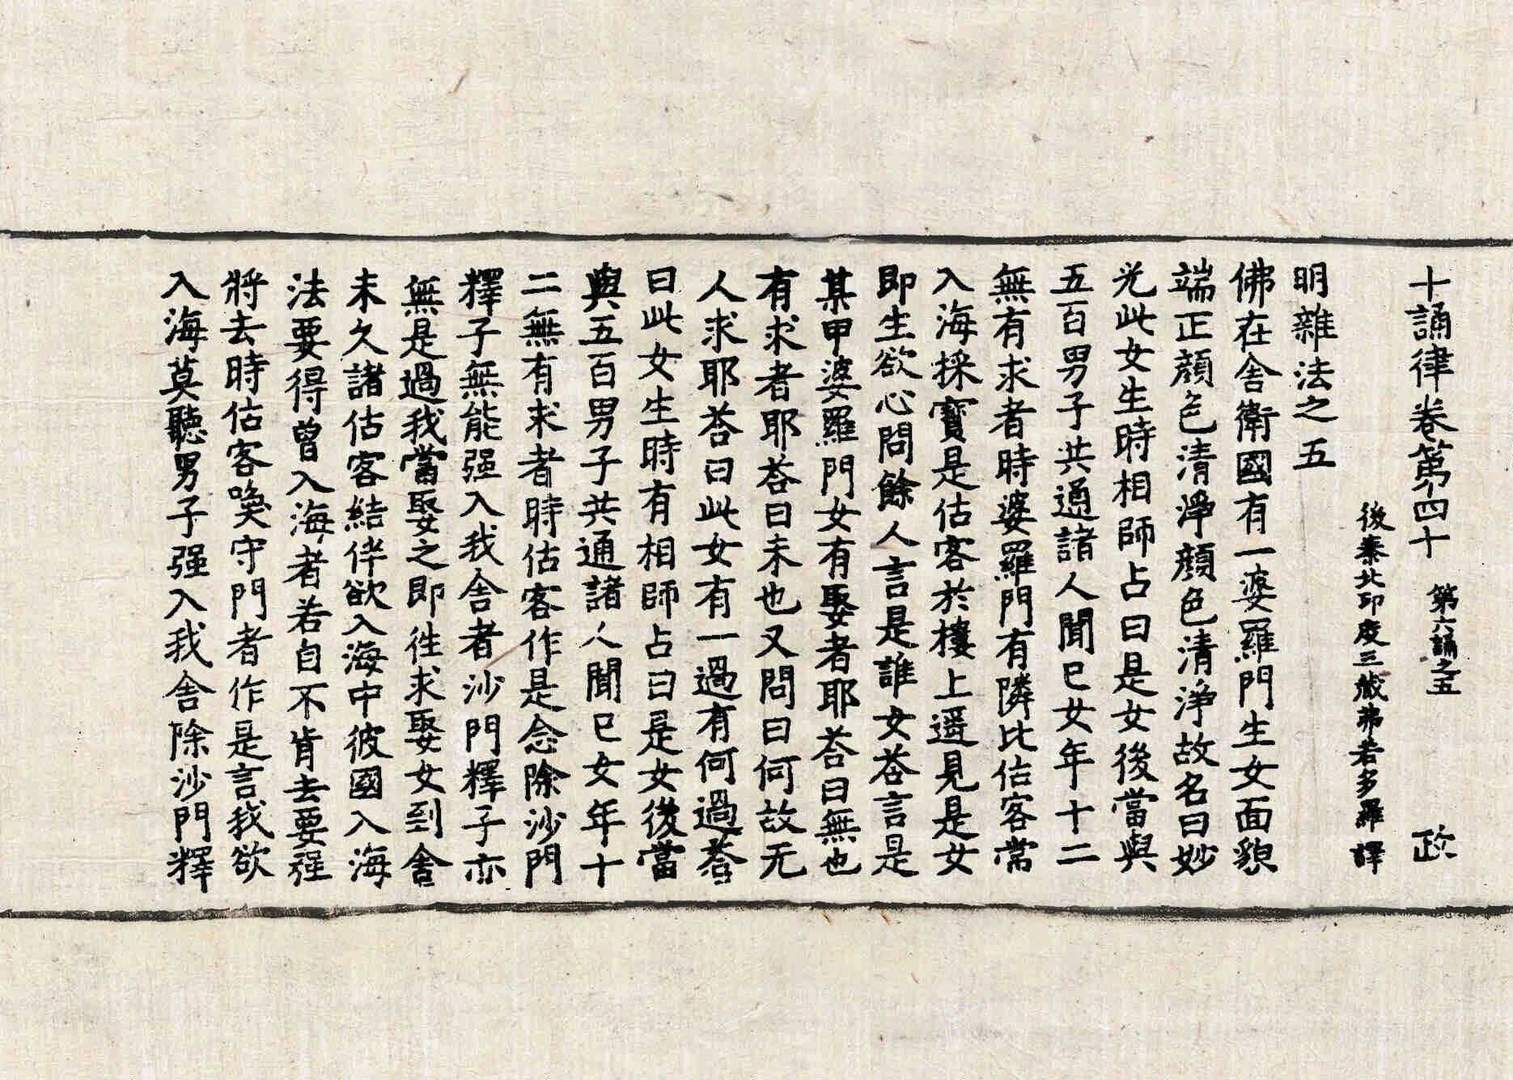 十誦律卷第四十 第六誦之五 政
後秦北印度三藏弗若多羅譯
明雜法之五
佛在舎衛國有一婆羅門生女面貌
端正顔色清淨顔色清淨故名曰妙
光此女生時相師占曰是女後當與
五百男子共通諸人聞已女年十二
無有求者時婆羅門有隣比估客常
入海採寶是估客於樓上遥見是女
即生欲心問餘人言是誰女荅言是
某甲婆羅門女有娶者耶荅曰無也
有求者耶荅曰未也又問曰何故无
人求耶荅曰此女有一過有何過荅
曰此女生時有相師占曰是女後當
與五百男子共通諸人聞已女年十
二無有求者時估客作是念除沙門
釋子無能强入我舍者沙門釋子亦
無是過我當娶之即往求娶女到舍
未久諸估客結伴欲入海中彼國入海
法要得曾入海者若自不肯去要强
將去時估客喚守門者作是言我欲
入海莫聽男子强入我舍除沙門釋